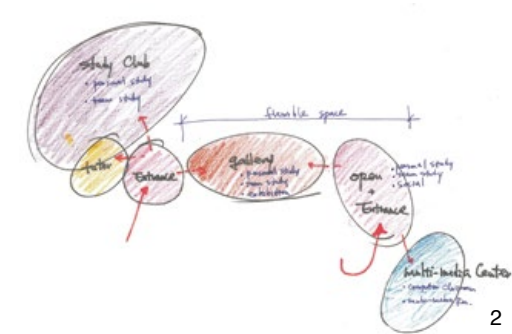 study Club
• personal study
• team study
flexible space
tutor
Entrance
gallery
• personal study
• team study
• exhibition
open
+
Entrance
• personal study
• team study
• social
multi-media Center
• computer classroom
2